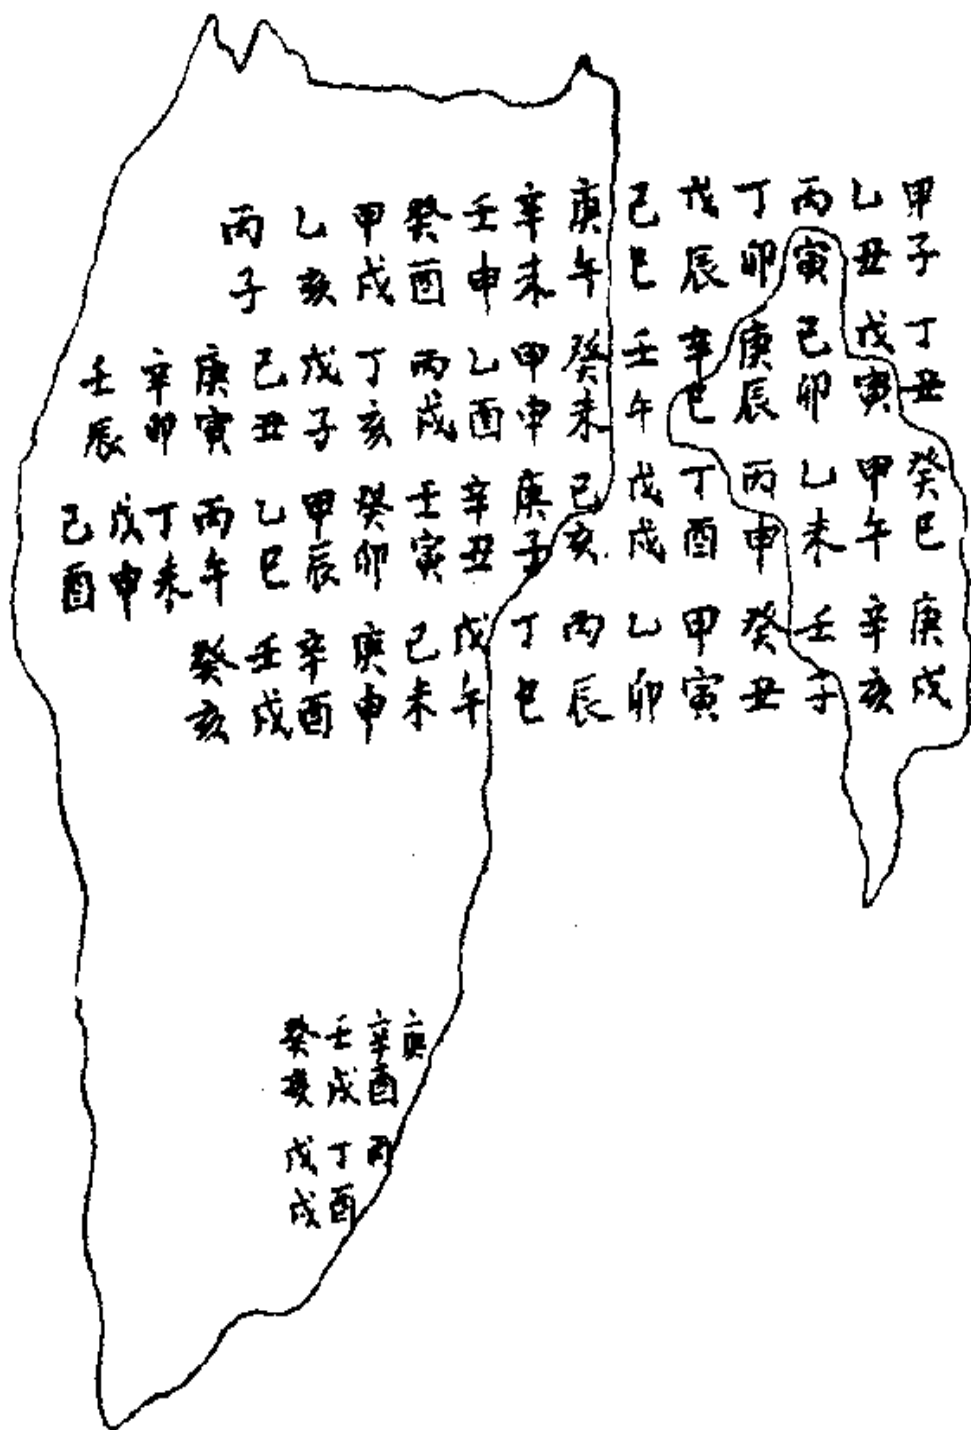 甲子乙丑丙寅丁卯戊辰己巳庚午辛未壬申癸酉甲戌乙亥丙子
丁丑戊寅己卯庚辰辛巳壬午癸未甲申乙酉丙戌丁亥戊子己丑庚寅辛卯壬辰
癸巳甲午乙未丙申丁酉戊戌己亥庚子辛丑壬寅癸卯甲辰乙巳丙午丁未戊申己酉
庚戌辛亥壬子癸丑甲寅乙卯丙辰丁巳戊午己未庚申辛酉壬戌癸亥
庚辛酉壬戌癸亥
丙丁酉戊戌